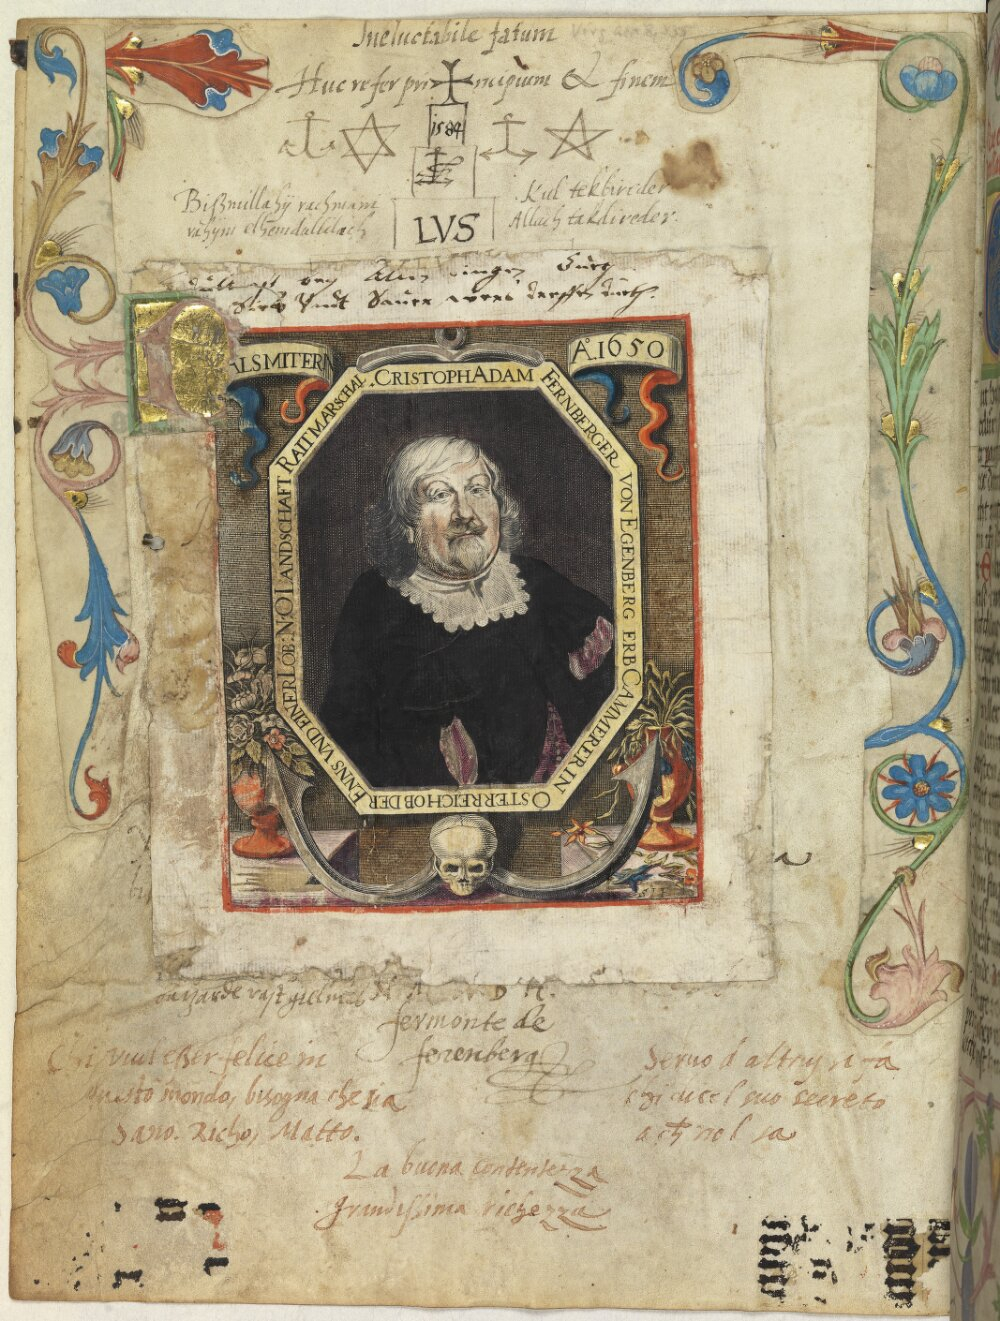 Ineluctabile fatum
Huc refer principium & finem
1584
Bißmillahÿ rachmam
rahÿm elhemdulilach
Kul tekbireder
Allach takdireder.
LVS
ALS MIT ERN
Aº. 1650
CRISTOPH ADAM FERNBERGER VON EGENBERG ERB CAMMERER IN OSTERREICH OB DER ENNS VND EINER LOB: N: O LANDSCHAFT RAIT MARSCHAL.
fermonte de
ferenberg
Chi vuol esser felice in
questo mondo, bisogna che sia
Sano. Richo, Matto.
Servo d altry si fa
Chi dice l suo secreto
a chi no l sa
La buena contentezza
Grandissima richezza